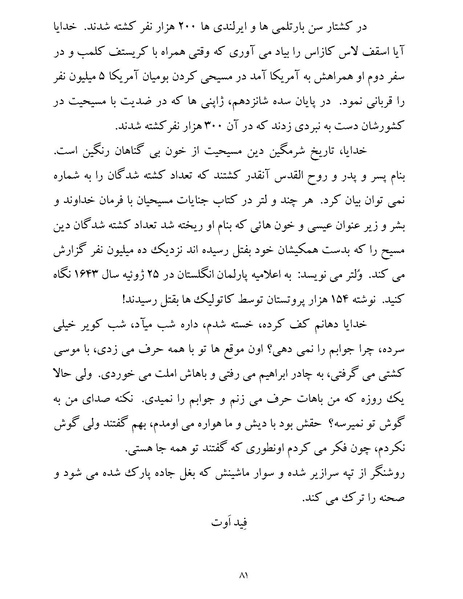 در کشتار سن بارتلمی ها و ایرلندی ها ۲۰۰ هزار نفر کشته شدند. خدایا
آیا اسقف لاس کازاس را بیاد می آوری که وقتی همراه با کریستف کلمب و در
سفر دوم او همراهش به آمریکا آمد در مسیحی کردن بومیان آمریکا ۵ میلیون نفر
را قربانی نمود. در پایان سده شانزدهم، ژاپنی ها که در ضدیت با مسیحیت در
کشورشان دست به نبردی زدند که در آن ۳۰۰ هزار نفر کشته شدند.
خدایا، تاریخ شرمگین دین مسیحیت از خون بی گناهان رنگین است.
بنام پسر و پدر و روح القدس آنقدر کشتند که تعداد کشته شدگان را به شماره
نمی توان بیان کرد. هر چند و لتر در کتاب جنایات مسیحیان با فرمان خداوند و
بشر و زیر عنوان عیسی و خون هائی که بنام او ریخته شد تعداد کشته شدگان دین
مسیح را که بدست همکیشان خود بقتل رسیده اند نزدیک ده میلیون نفر گزارش
می کند. وُلتر می نویسد: به اعلامیه پارلمان انگلستان در ۲۵ ژوئیه سال ۱۶۴۳ نگاه
کنید. نوشته ۱۵۴ هزار پروتستان توسط کاتولیک ها بقتل رسیدند!
خدایا دهانم کف کرده، خسته شدم، داره شب میآد، شب کویر خیلی
سرده، چرا جوابم را نمی دهی؟ اون موقع ها تو با همه حرف می زدی، با موسی
کشتی می گرفتی، به چادر ابراهیم می رفتی و باهاش املت می خوردی. ولی حالا
یک روزه که من باهات حرف می زنم و جوابم را نمیدی. نکنه صدای من به
گوش تو نمیرسه؟ حقش بود با دیش و ما هواره می اومدم، بهم گفتند ولی گوش
نکردم، چون فکر می کردم اونطوری که گفتند تو همه جا هستی.
روشنگر از تپه سرازیر شده و سوار ماشینش که بغل جاده پارک شده می شود و
صحنه را ترک می کند.
فِید اَوت
۸۱